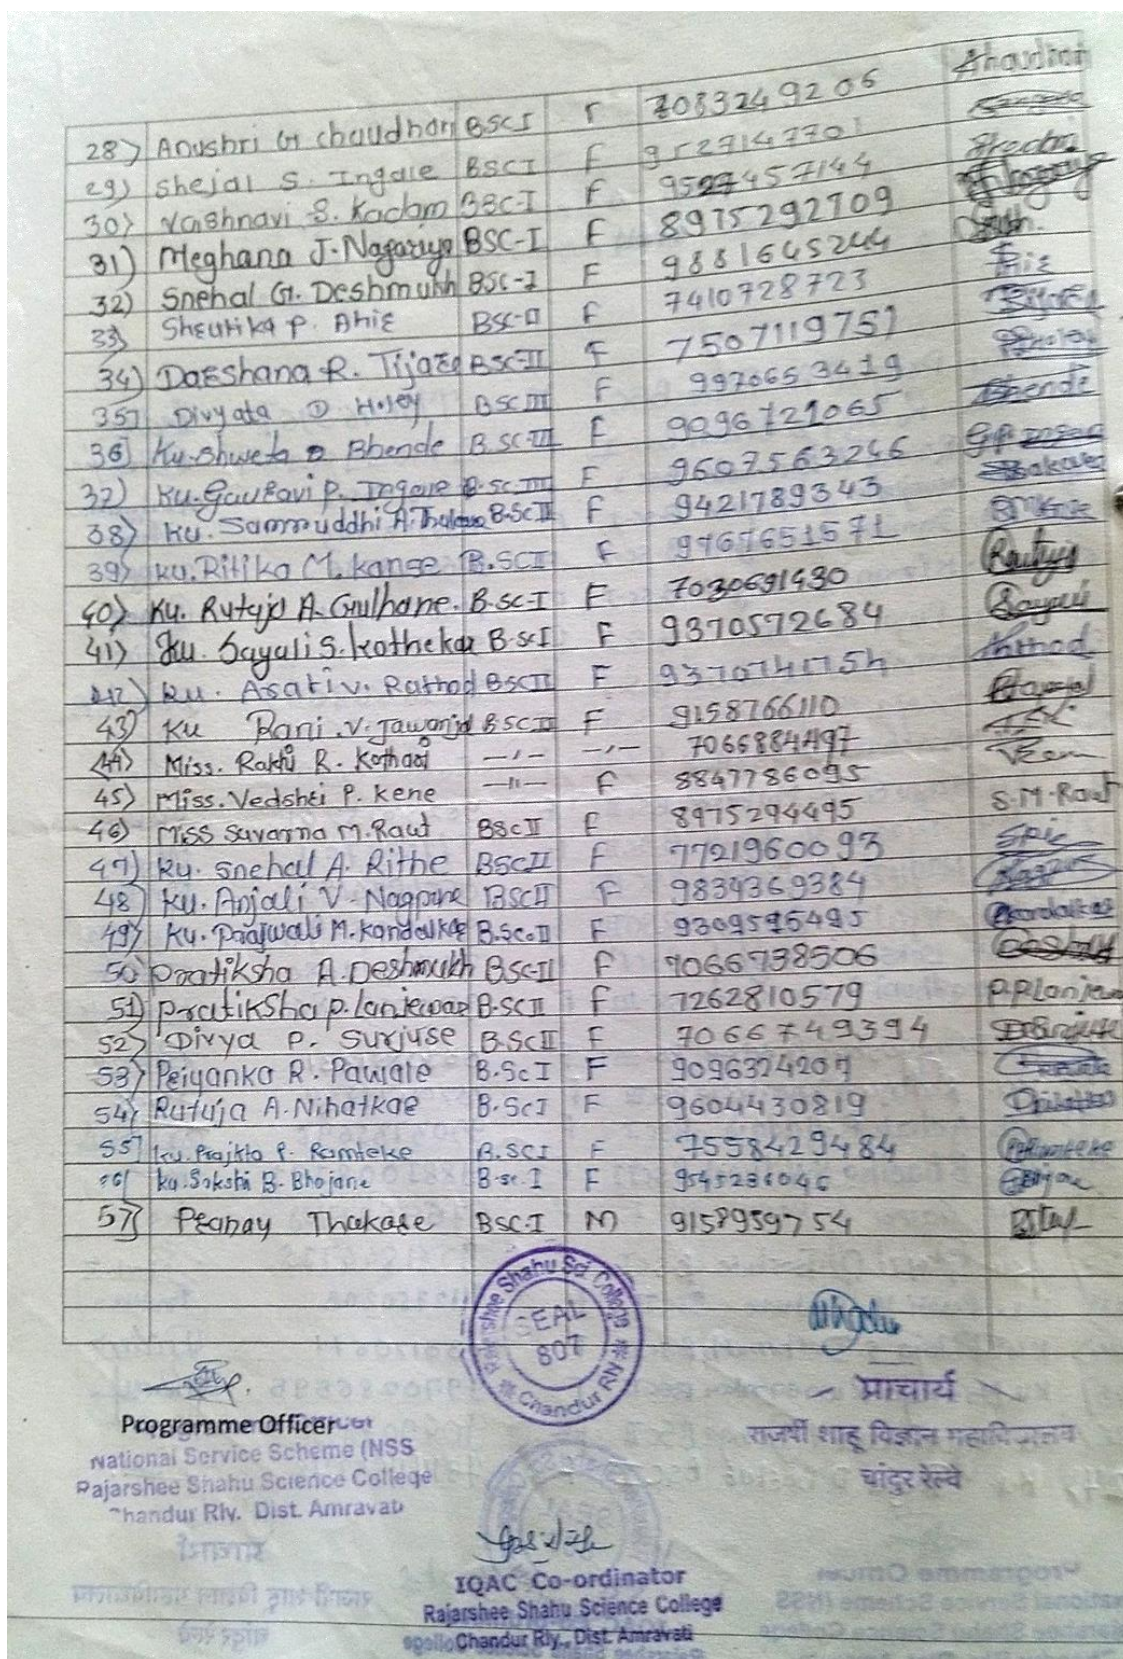 28) Anushri G chaudhari BSCI F 7083249206
29) Shejal S. Ingale BSCI F 9527147701
30) Vaishnavi S. Kadam BSC-I F 9527457144
31) Meghana J. Nagariya BSC-I F 8975292709
32) Snehal G. Deshmukh BSC-I F 9881645244
33) Shrutika P. Ahir BSC-II F 7410728723
34) Darshana R. Tijare BSC-II F 7507119751
35) Divyata D Holey BSC III F 9970653419
36) Ku. Shweta D Bhende B.SC-III F 9096721065
37) Ku. Gauravi P. Ingole B.SC III F 9607563246
38) Ku. Sammruddhi A. B.SC II F 9421789343
39) Ku. Ritika M. kanse B.SCI F 9767651571
40) Ku. Rutuja A. Gulhane. B.SC-I F 7030691430
41) Ku. Sayali S. Kothekar B.SCI F 9370572684
42) Ku. Arati V. Rathod BSCII F
43) Ku Rani .V. Jawanjal BSC II F 9158766110
44) Miss. Rakhi R. Kothari —,— —,— 7066884497
45) Miss. Vedshri P. Kene —11— F 8847786095
46) Miss Suvarna M. Raut BSC II F 8975294495 S.M.Raut
47) Ku. Snehal A. Rithe BSCII F 7721960093
48) Ku. Anjali V. Nagpure BSCII F 9834369384
49) Ku. Prajwali M. Kandalkar B.Sc.II F 9309595495
50) Pratiksha A. Deshmukh BSC-II F 7066738506
51) Pratiksha p. lanjewar B.SCII F 7262810579 P.P.Lanjewar
52) Divya P. Surjuse B.SCII F 7066749394
53) Priyanka R. Pawale B.SC I F 9096324207
54) Rutuja A. Nihatkar B.SCI F 9604430819
55) Ku. Prajkta P. Ramteke B.SCI F 7558429484
56) Ku. Sakshi B. Bhojane B.sc. I F 9545236046
57) Pranay Thakare BSC.I M 9158959754
Rajarshee Shahu Sci. College
SEAL
807
Chandur Rly
Programme Officer
National Service Scheme (NSS
Rajarshee Shahu Science College
Chandur Rly. Dist. Amravati
प्राचार्य
राजर्षी शाहू विज्ञान महाविद्यालय
चांदुर रेल्वे
IQAC Co-ordinator
Rajarshee Shahu Science College
Chandur Rly., Dist. Amravati